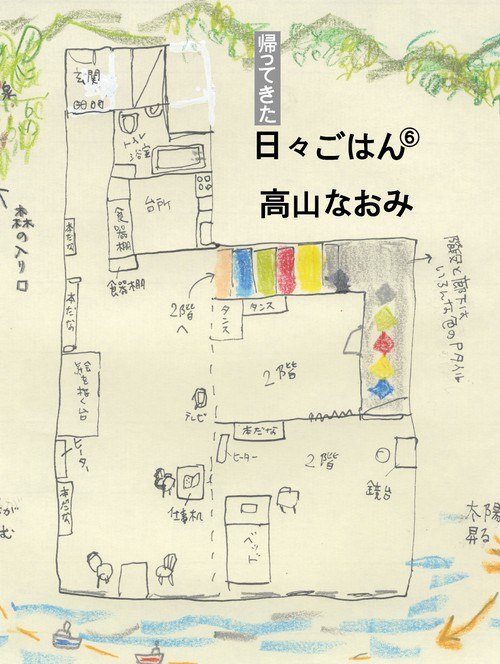 帰ってきた
日々ごはん⑥
高山なおみ
玄関
トイレ
浴室
台所
食器棚
食器棚
森の入り口
本だな
本だな
2階へ
タンス
タンス
階段と廊下は
いろんな色のPタイル
2階
絵を描く台
テレビ
本だな
ヒーター
ヒーター
2階
鏡台
本だな
仕事机
ベッド
太陽
昇る